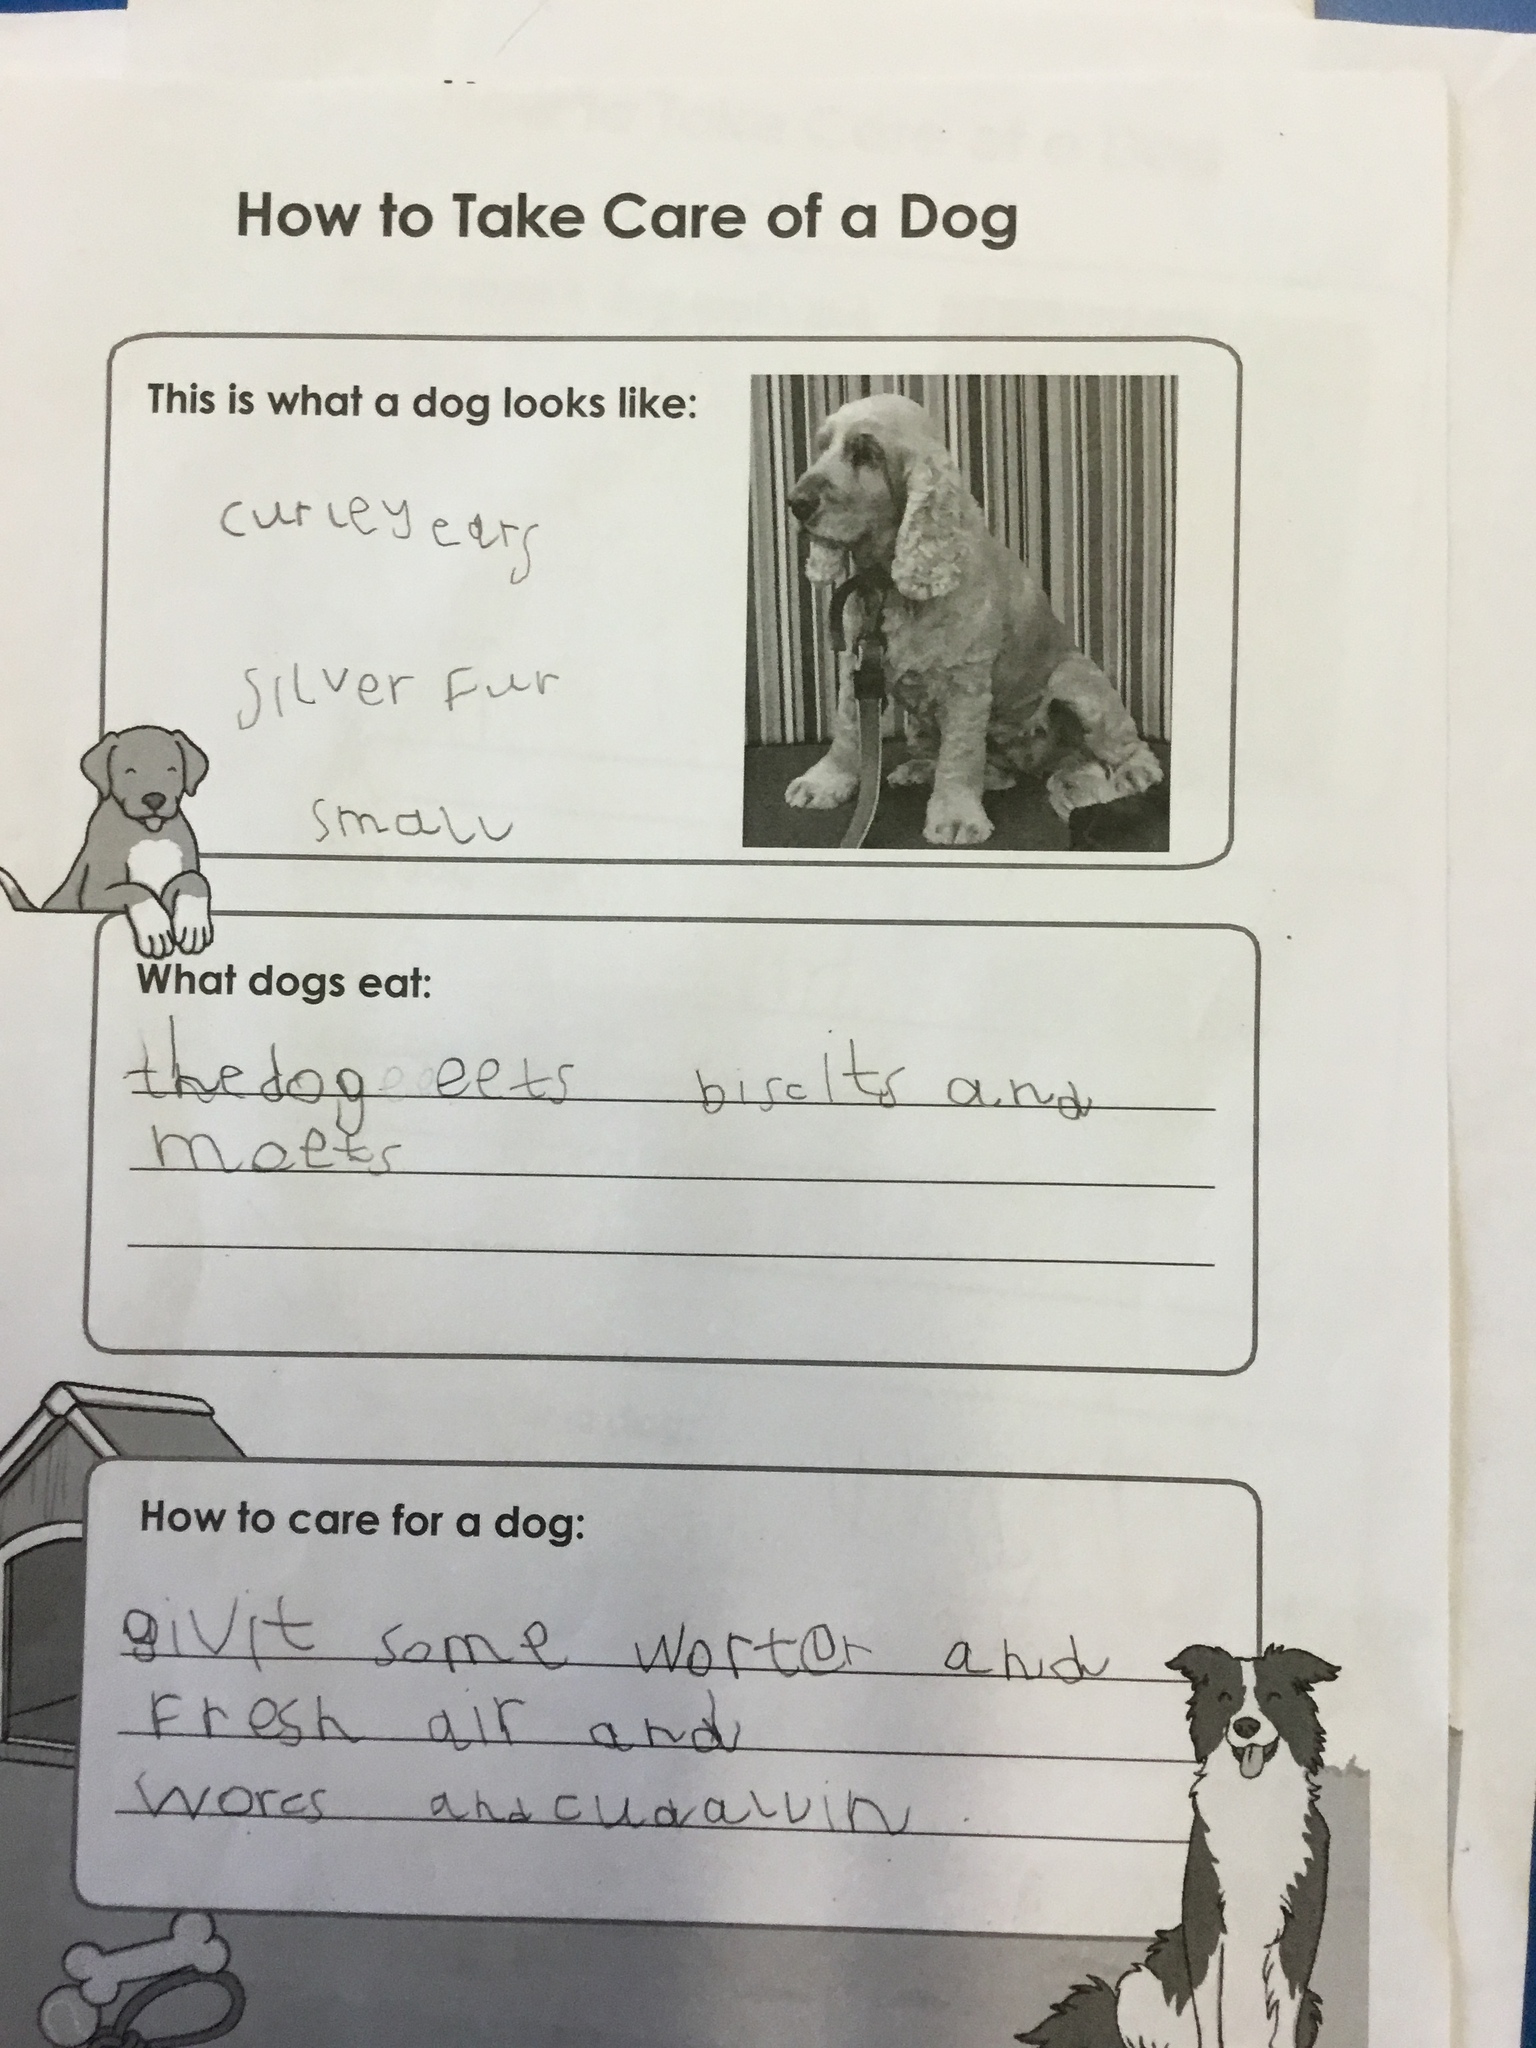 How to Take Care of a Dog
This is what a dog looks like:
curley ears
silver fur
small
What dogs eat:
the dog eets biscits and
meets
How to care for a dog:
givit some worter and
fresh air and
worcs and cudallin.